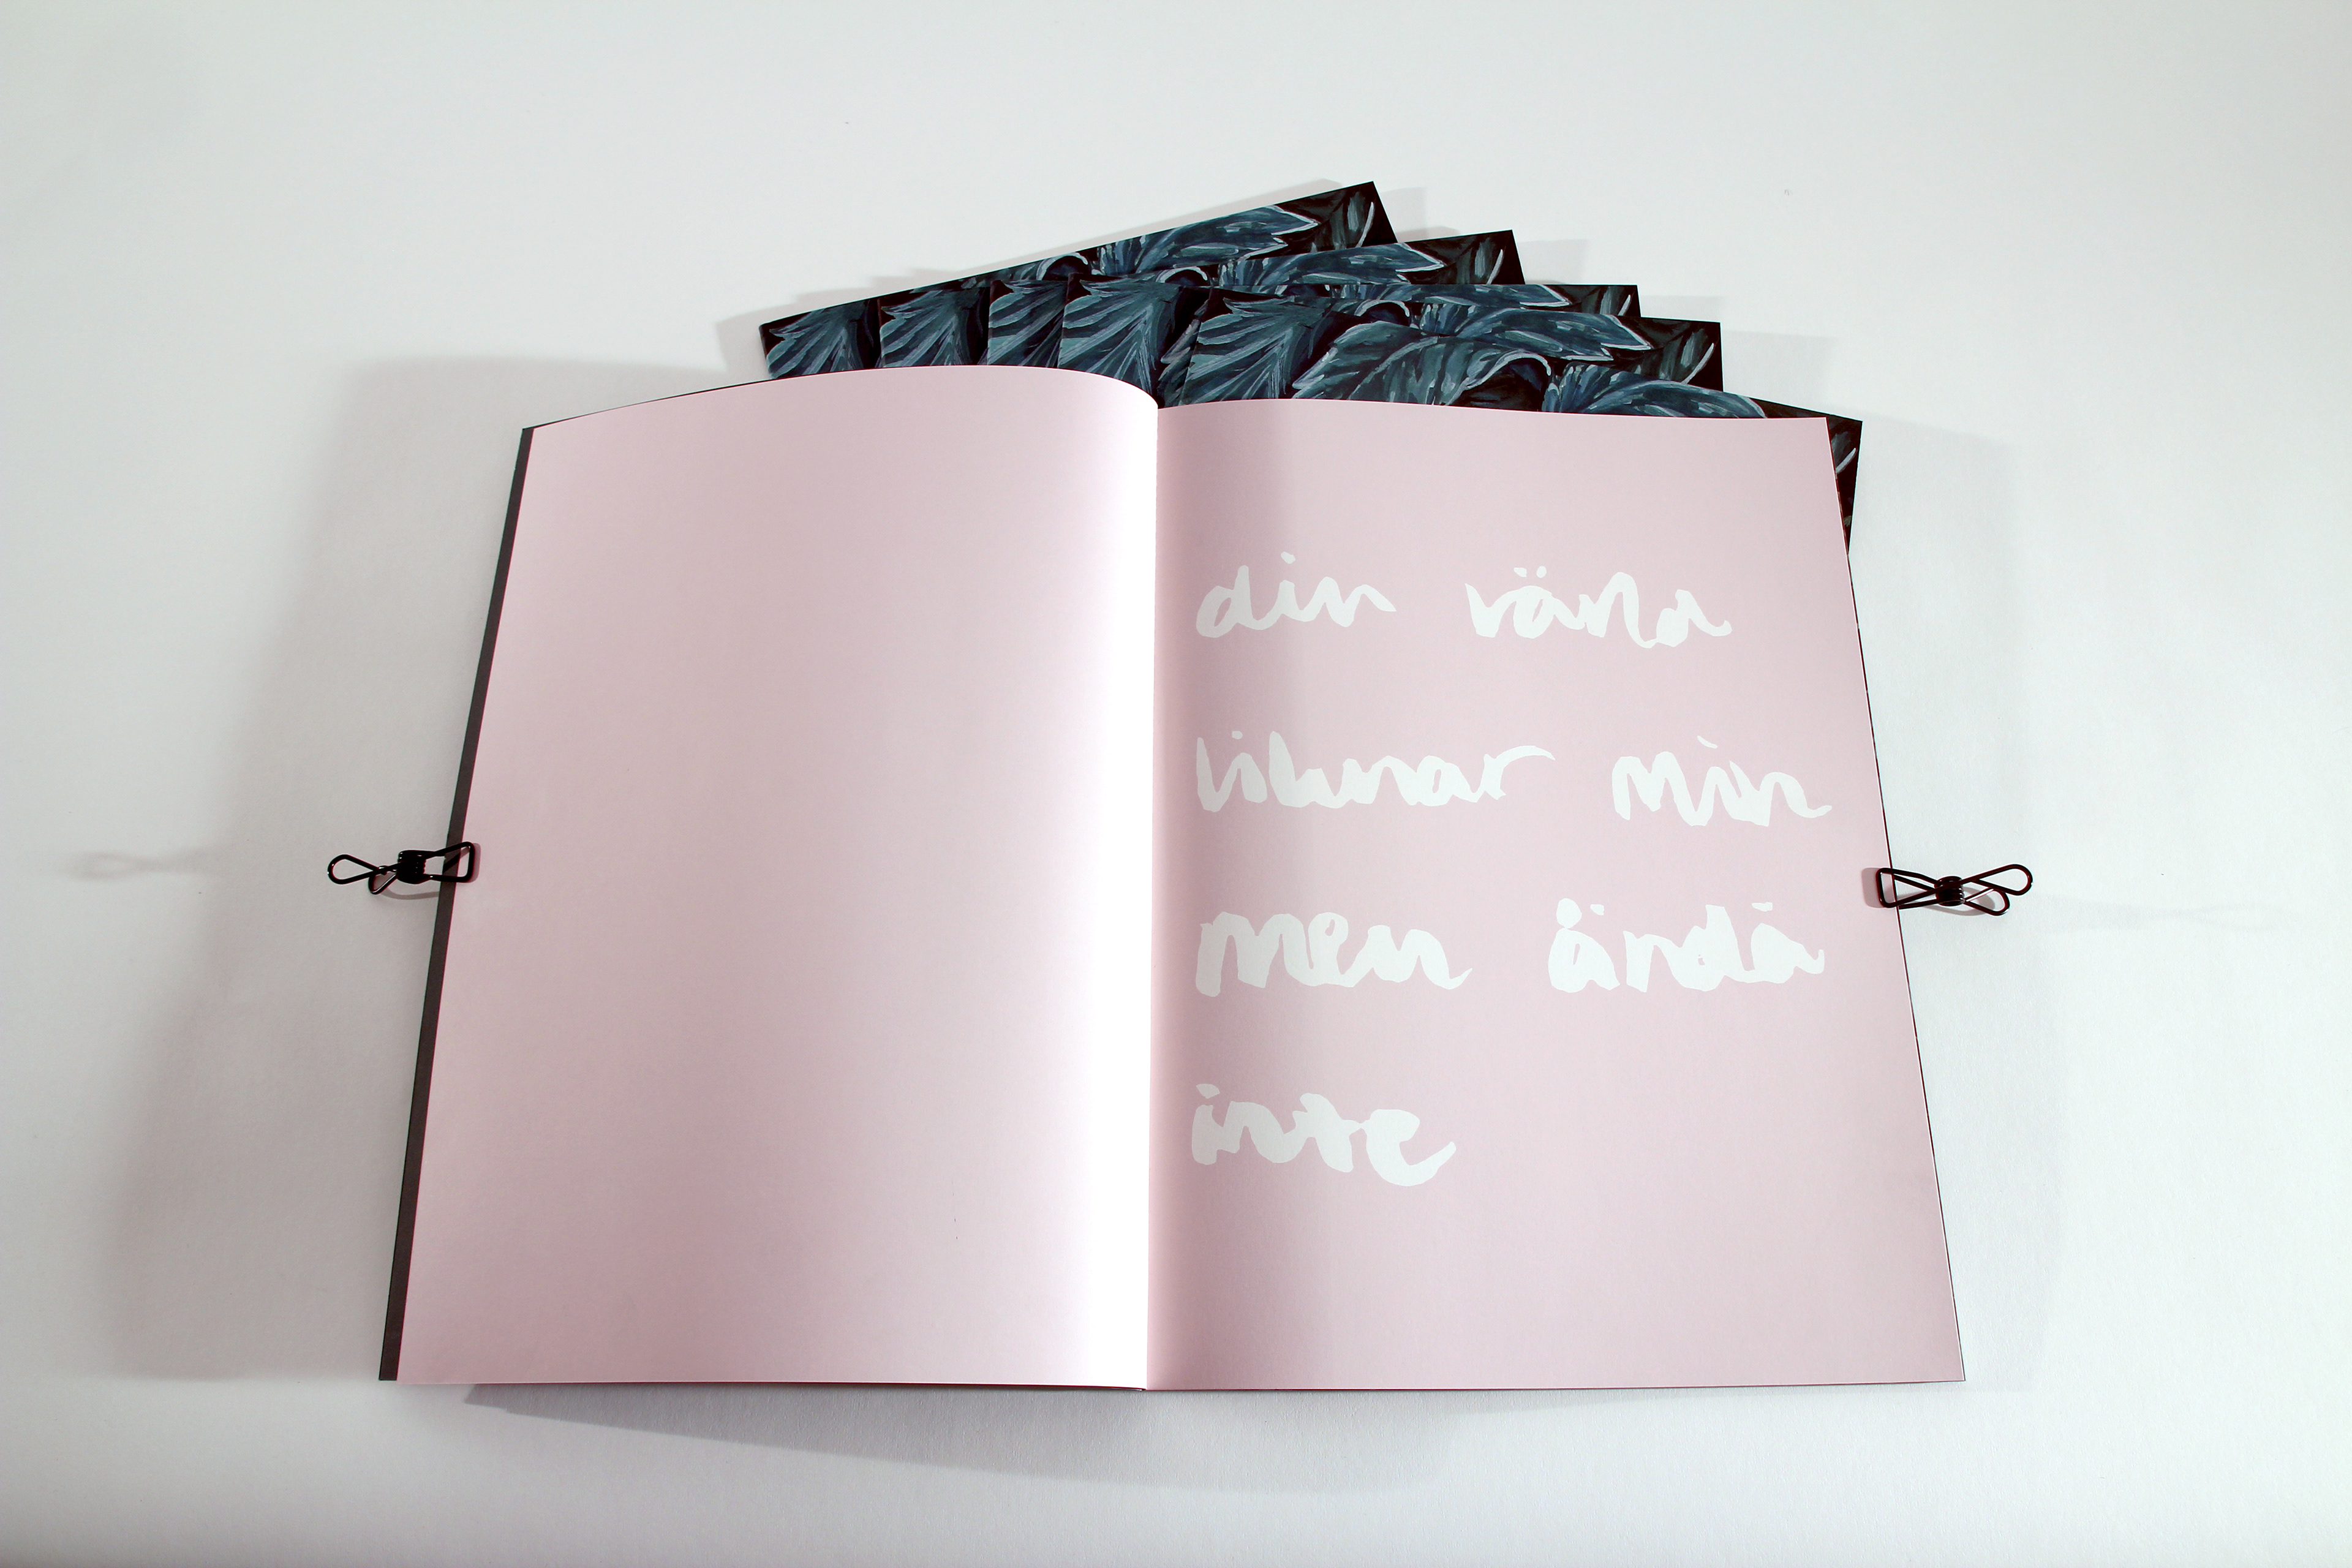 din värld
liknar min
men ändå
inte